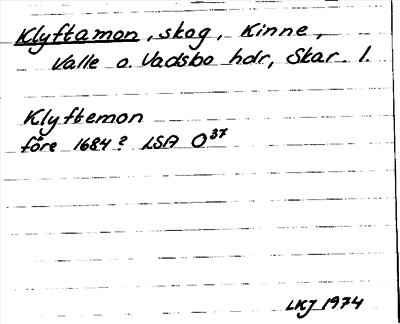 Klyftamon, skog, Kinne,
Valle o. Vadsbo hdr, Skar. l.
Klyftemon
före 1684? LSA O37
LKJ 1974